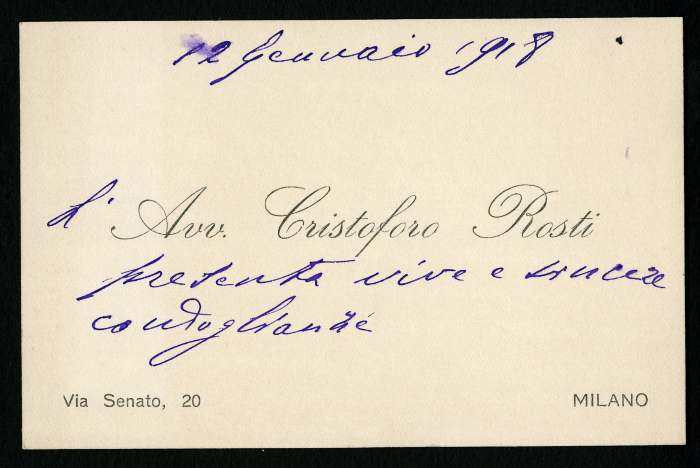 12 Gennaio 1918
L' Avv. Cristoforo Rosti
presenta vive e sincere
condoglianze
Via Senato, 20 MILANO